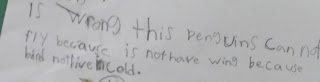 is wrong this penguins can not
fly because is not have wing because
bird not live in cold.